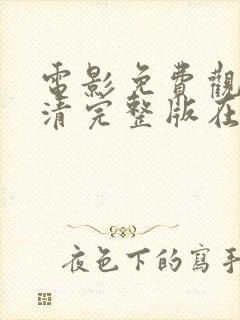 電影免費觀
清完整版在
夜色下的寫手